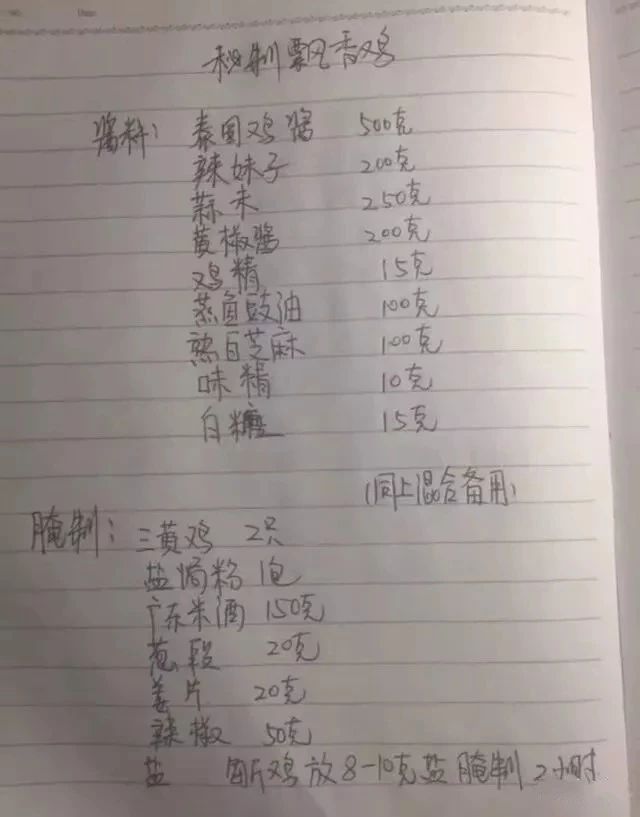 秘制飘香鸡
酱料：泰国鸡酱 500克
辣妹子 200克
蒜未 250克
黄椒酱 200克
鸡精 15克
蒸鱼豉油 100克
熟白芝麻 100克
味精 10克
白糖 15克
(同上混合备用)
腌制：三黄鸡 2只
盐焗粉 1包
广东米酒 150克
葱段 20克
姜片 20克
辣椒 50克
盐 每斤鸡放8-10克盐腌制2小时